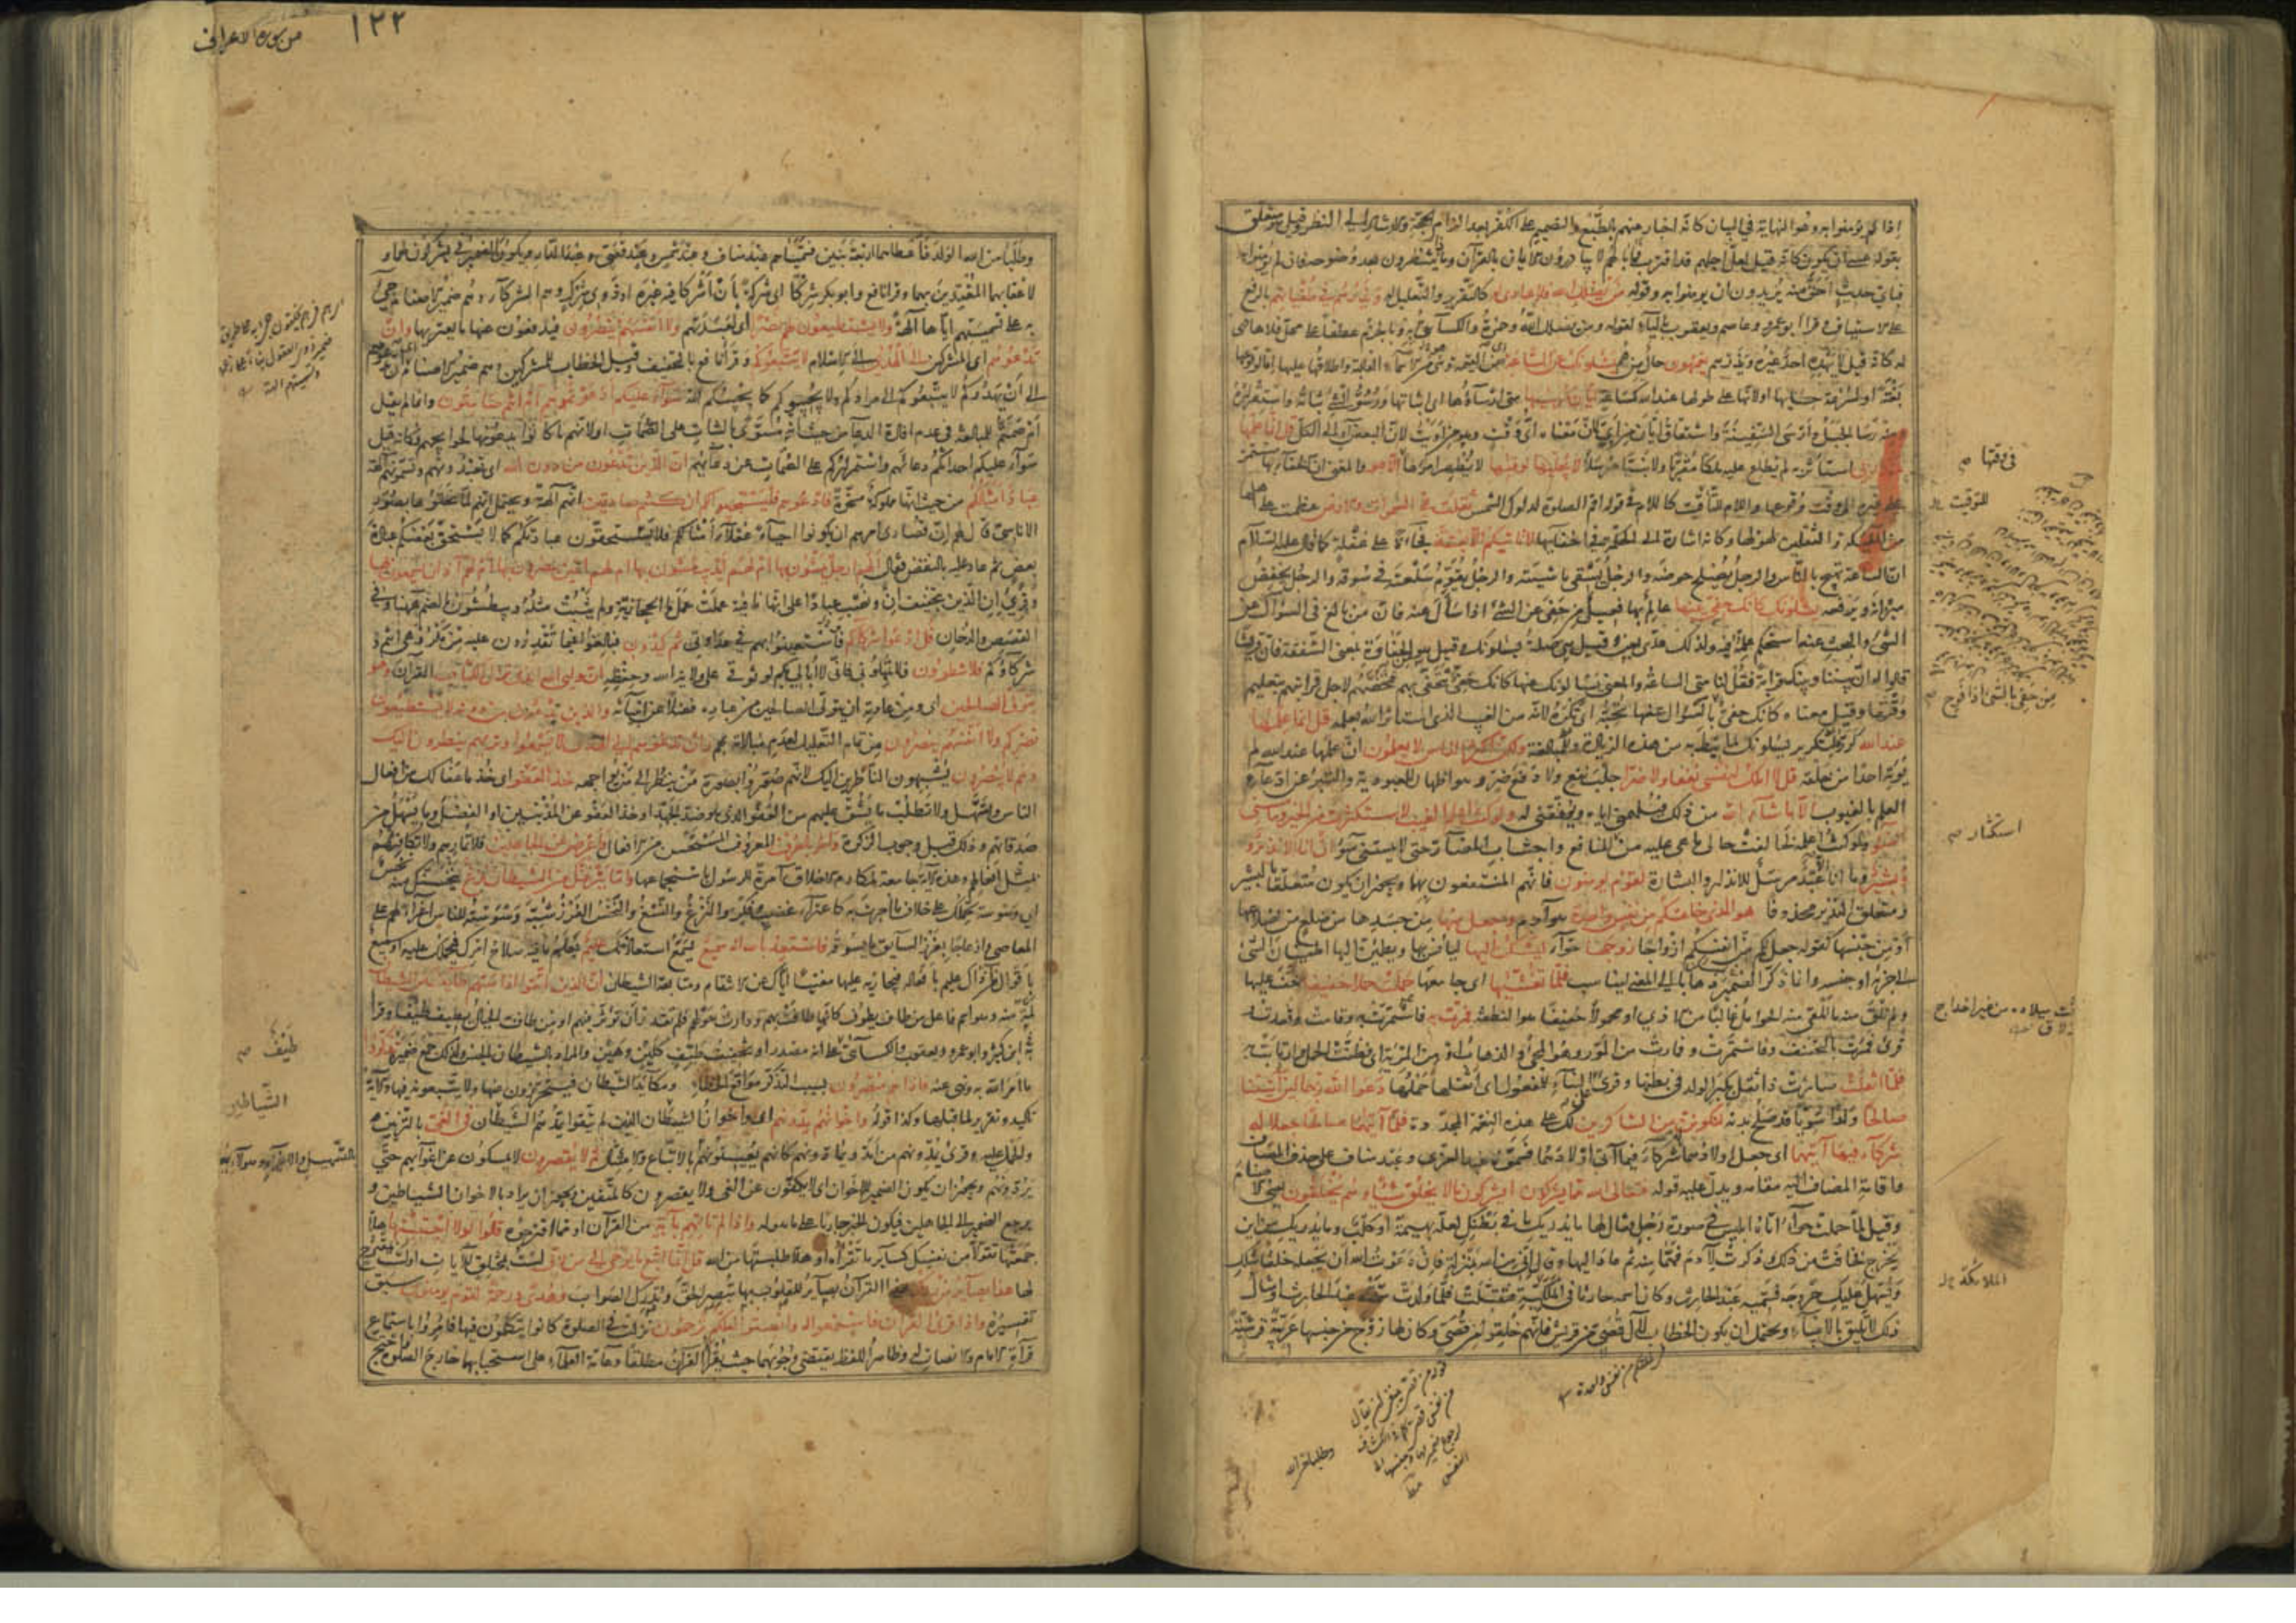 إذا لم يؤمنوا به وهو النهاية في البيان كأنه إخبار عنهم بالطبع والتصميم على الكفر بعد الزام الحجة والإرشاد إلى النظر وقيل هو متعلق
بقوله عسى ان يكون كانه قيل لعل اجلهم قد اقترب فما بالهم لا يبادرون الايمان بالقرآن وماذا ينتظرون بعد وضوحه فان لم يؤمنوا به
فباي حديث احق منه يريدون ان يؤمنوا به وقوله من يضلل الله فلا هادي له كالتقرير والتعليل له ويذرهم في طغيانهم بالرفع
على الاستيناف وقرأ ابو عمرو وعاصم ويعقوب بالياء لقوله ومن يضلل الله وحمزة والكسائي به وبالجزم عطفا على محل فلا هادي
له كانه قيل لا يهده احد غيره ويذرهم يعمهون حال من هم يسئلونك عن الساعة اي عن القيمة وهي من الاسماء الغالبة واطلاقها عليها اما لوقوعها
بغتة او لسرعة حسابها او لانها على طولها عند الله كساعة ايان مرسيها متى ارساؤها اي اثباتها ورسو الشئ ثباته واستقراره
ومنه رسا الجبل وارسى السفينة واشتقاق ايان من اي لان معناه اي وقت وهو من اويت لان البعض آو الى الكل قل انما علمها
عند ربي استأثر به لم يطلع عليه ملكا مقربا ولا نبيا مرسلا لا يجليها لوقتها لا يظهر امرها الا هو والمعنى ان الخفاء بها مستمر
على غيره الى وقت وقوعها واللام للتأقيت كاللام في قوله اقم الصلوة لدلوك الشمس ثقلت في السموات والارض عظمت على اهلها
من الملئكة والثقلين لهولها وكانه اشارة الى الحكمة في اخفائها لا تاتيكم الا بغتة فجأة على غفلة كما قال عليه السلام
ان الساعة تهيج بالناس والرجل يصلح حوضه والرجل يسقي ماشيته والرجل يقوم سلعته في سوقه والرجل يخفض
ميزانه ويرفعه يسئلونك كانك حفي عنها عالم بها فعيل من حفي عن الشئ اذا سأل عنه فان من بالغ في السؤال عن
الشئ والبحث عنه استحكم علمه فيه ولذلك عدي بعن وقيل هي صلة يسئلونك وقيل هو من الحفاوة بمعنى الشفقة فان قريشا
قالوا له ان بيننا وبينك قرابة فقل لنا متى الساعة والمعنى يسئلونك عنها كانك حفي تتحفى بهم فتخصهم لاجل قرابتهم بتعليم
وقتها وقيل معناه كانك حفي بالسؤال عنها تحبه اي تكره لانه من الغيب الذي استأثر الله بعلمه قل انما علمها
عند الله كرره لتكرير يسئلونك لما نيط به من هذه الزيادة وللمبالغة ولكن اكثر الناس لا يعلمون ان علمها عند الله لم
يؤته احدا من خلقه قل لا املك لنفسي نفعا ولا ضرا جلب نفع ولا دفع ضر وهو اظهار للعبودية والتبرئ عن ادعاء
العلم بالغيوب الا ما شاء الله من ذلك فيلهمني اياه ويوفقني له ولو كنت اعلم الغيب لاستكثرت من الخير وما مسني
السوء ولو كنت اعلمه لخالفت حالي ما هي عليه من المنافع واجتناب المضار حتى لا يمسني سوء ان انا الا نذير و
بشير ما انا الا عبد مرسل للانذار والبشارة لقوم يؤمنون فانهم المنتفعون بها ويجوز ان يكون متعلقا بالبشير
ومتعلق النذير محذوفا هو الذي خلقكم من نفس واحدة هو آدم وجعل منها من جسدها من ضلع من اضلاعها
او من جنسها كقوله جعل لكم من انفسكم ازواجا زوجها حواء ليسكن اليها ليأنس بها ويطمئن اليها اطمينان الشئ
الى جزئه او جنسه وانما ذكر الضمير ذهابا الى المعنى ليناسب فلما تغشيها اي جامعها حملت حملا خفيفا خف عليها
ولم تلق منه ما تلقى منه الحوامل غالبا من الاذى او محمولا خفيفا هو النطفة فمرت به فاستمرت به وقامت وقعدت
قرئ فمرت بالتخفيف وفاستمرت وفمارت من المور وهو المجئ والذهاب او من المرية اي فظنت الحمل وارتابت به
فلما اثقلت صارت ذا ثقل بكبر الولد في بطنها وقرئ على البناء للمفعول اي اثقلها حملها دعوا الله ربهما لئن آتيتنا
صالحا ولدا سويا قد صلح بدنه لنكونن من الشاكرين لك على هذه النعمة المجددة فلما آتيهما صالحا جعلا له
شركاء فيما آتيهما اي جعل اولادهما له شركاء فيما آتى اولادهما فسموه عبد العزى وعبد مناف على حذف المضاف
واقامة المضاف اليه مقامه ويدل عليه قوله فتعالى الله عما يشركون ايشركون ما لا يخلق شيئا وهم يخلقون يعني الاصنام
وقيل لما حملت حواء اتاها ابليس في صورة رجل فقال لها ما يدريك ما في بطنك لعله بهيمة او كلب وما يدريك من اين
يخرج فخافت من ذلك وذكرت لآدم فهما منه ثم عاد اليها وقال اني من الله بمنزلة فان دعوت الله ان يجعله خلقا مثلك
ويسهل عليك خروجه فسميه عبد الحارث وكان اسمه حارثا في الملئكة فتقبلت فلما ولدت سمته عبد الحارث وامثال
ذلك لا يليق بالانبياء ويحتمل ان يكون الخطاب لآل قصي من قريش فانهم خلقوا من قصي وكان لها زوج من جنسها عربية قرشية
في وقتها صح
للتوقيت
من حفي بالشئ اذا فرح
استكثار صح
الملائكة
خلقكم من نفس واحدة
وطلبا من الله
١٢٢
من سورة الاعراف
وطلبا من الله الولد فاعطاهما اربعة بنين فسمياهم عبد مناف وعبد شمس وعبد قصي وعبد الدار ويكون الضمير في يشركون لهما و
لاعقابهما المقتدين بهما وقرأ نافع وابو بكر شركا اي شركة بأن اشركا فيه غيره او ذوي شرك وهم الشركاء وهم ضمير الاصنام جئ
به على تسميتهم اياها آلهة ولا يستطيعون لهم نصرا اي لعبدتهم ولا انفسهم ينصرون فيدفعون عنها ما يعتريها وان
تدعوهم اي المشركين الى الهدى الى الاسلام لا يتبعوكم وقرأ نافع بالتخفيف وقيل الخطاب للمشركين وهم ضمير الاصنام اي ان تدعوهم
الى ان يهدوكم لا يتبعوكم الى مرادكم ولا يجيبوكم كما يجيبكم الله سواء عليكم ادعوتموهم ام انتم صامتون وانما لم يقل
ام صمتم للمبالغة في عدم افادة الدعاء من حيث انه مسوى بالثبات على الصمات او لانهم ما كانوا يدعونها لحوائجهم فكانه قيل
سواء عليكم احداثكم دعائهم واستمراركم على الصمات عن دعائهم ان الذين تدعون من دون الله اي تعبدونهم وتسمونهم آلهة
عباد امثالكم من حيث انها مملوكة مسخرة فادعوهم فليستجيبوا لكم ان كنتم صادقين انهم آلهة ويحتمل انهم لما نحتوها بصور
الاناسي قال لهم ان قصارى امرهم ان يكونوا احياء عقلاء امثالكم فلا يستحقون عبادتكم كما لا يستحق بعضكم عبادة
بعض ثم عاد عليه بالنقض فقال الهم ارجل يمشون بها ام لهم ايد يبطشون بها ام لهم اعين يبصرون بها ام لهم آذان يسمعون بها
وقرئ ان الذين بتخفيف ان ونصب عبادا على انها نافية عملت عمل ما الحجازية ولم يثبت مثله ويبطشون بالضم ههنا وفي
القصص والدخان قل ادعوا شركاءكم فاستعينوا بهم في عداوتي ثم كيدون فبالغوا فيما تقدرون عليه من مكروهي انتم و
شركاؤكم فلا تنظرون فلا تمهلون فاني لا ابالي بكم لوثوقي على ولاية الله وحفظه ان وليي الله الذي نزل الكتاب القرآن وهو
يتولى الصالحين اي ومن عادته ان يتولى الصالحين من عباده فضلا عن انبيائه والذين تدعون من دونه لا يستطيعون
نصركم ولا انفسهم ينصرون من تمام التعليل لعدم مبالاته بهم وان تدعوهم الى الهدى لا يسمعوا وتريهم ينظرون اليك
وهم لا يبصرون يشبهون الناظرين اليك لانهم صوروا بصورة من ينظر الى من يواجهه خذ العفو اي خذ ما عفا لك من افعال
الناس وتسهل ولا تطلب ما يشق عليهم من العفو الذي هو ضد الجهد او خذ العفو عن المذنبين او الفضل وما يسهل من
صدقاتهم وذلك قبل وجوب الزكوة وأمر بالعرف المعروف المستحسن من الافعال واعرض عن الجاهلين فلا تمارهم ولا تكافهم
بمثل افعالهم وهذه الآية جامعة لمكارم الاخلاق آمرة للرسول باستجماعها واما ينزغنك من الشيطان نزغ ينخسنك منه نخس
اي وسوسة تحملك على خلاف ما امرت به كاعتراء غضب وفكر والنزغ والنسغ والنخس الغرز شبه وسوسته للناس اغراء لهم على
المعاصي وازعاجا بغرز السائق ما يسوقه فاستعذ بالله انه سميع يسمع استعاذتك عليم يعلم ما فيه صلاح امرك فيحملك عليه او سميع
باقوال من آذاك عليم بافعاله فيجازيه عليها مغنيا اياك عن الانتقام ومتابعة الشيطان ان الذين اتقوا اذا مسهم طائف من الشيطان
لمة منه وهو اسم فاعل من طاف يطوف كانها طافت بهم ودارت حولهم فلم تقدر ان تؤثر فيهم او من طاف به الخيال يطيف طيفا وقرأ
ابن كثير وابو عمرو ويعقوب والكسائي على انه مصدر او تخفيف طيف كلين وهين والمراد بالشيطان الجنس ولذلك جمع ضميره تذكروا
ما امر الله به ونهى عنه فاذا هم مبصرون بسبب التذكر مواقع الخطاء ومكائد الشيطان فيتحرزون عنها ولا يتبعونه فيها والآية
تاكيد وتقرير لما قبلها وكذا قوله واخوانهم يمدونهم اي واخوان الشياطين الذين لم يتقوا يمدهم الشيطان في الغي بالتزيين
والحمل عليه وقرئ يمدونهم من امد ويمادونهم كانهم يعينونهم بالاتباع والامتثال ثم لا يقصرون لا يمسكون عن اغوائهم حتى
يردوهم ويجوز ان يكون الضمير للاخوان اي لا يكفون عن الغي ولا يقصرون كالمتقين ويجوز ان يراد بالاخوان الشياطين و
يرجع الضمير الى الجاهلين فيكون الخبر جاريا على ما هو له واذا لم تأتهم بآية من القرآن او مما اقترحوه قالوا لولا اجتبيتها هلا
جمعتها تقولا من نفسك كسائر ما تقرأه او هلا طلبتها من الله قل انما اتبع ما يوحى الي من ربي لست بمختلق للآيات او لست بمقترح
لها هذا بصائر من ربكم هذا القرآن بصائر للقلوب بها يبصر الحق ويدرك الصواب وهدى ورحمة لقوم يؤمنون سبق
تفسيره واذا قرئ القرآن فاستمعوا له وانصتوا لعلكم ترحمون نزلت في الصلوة كانوا يتكلمون فيها فامروا باستماع
قراءة الامام والانصات له وظاهر اللفظ يقتضي وجوبهما حيث يقرأ القرآن مطلقا وعامة العلماء على استحبابهما خارج الصلوة واحتج
طيف صح
الشياطين
بالتسهيل والاغراء وهؤلاء